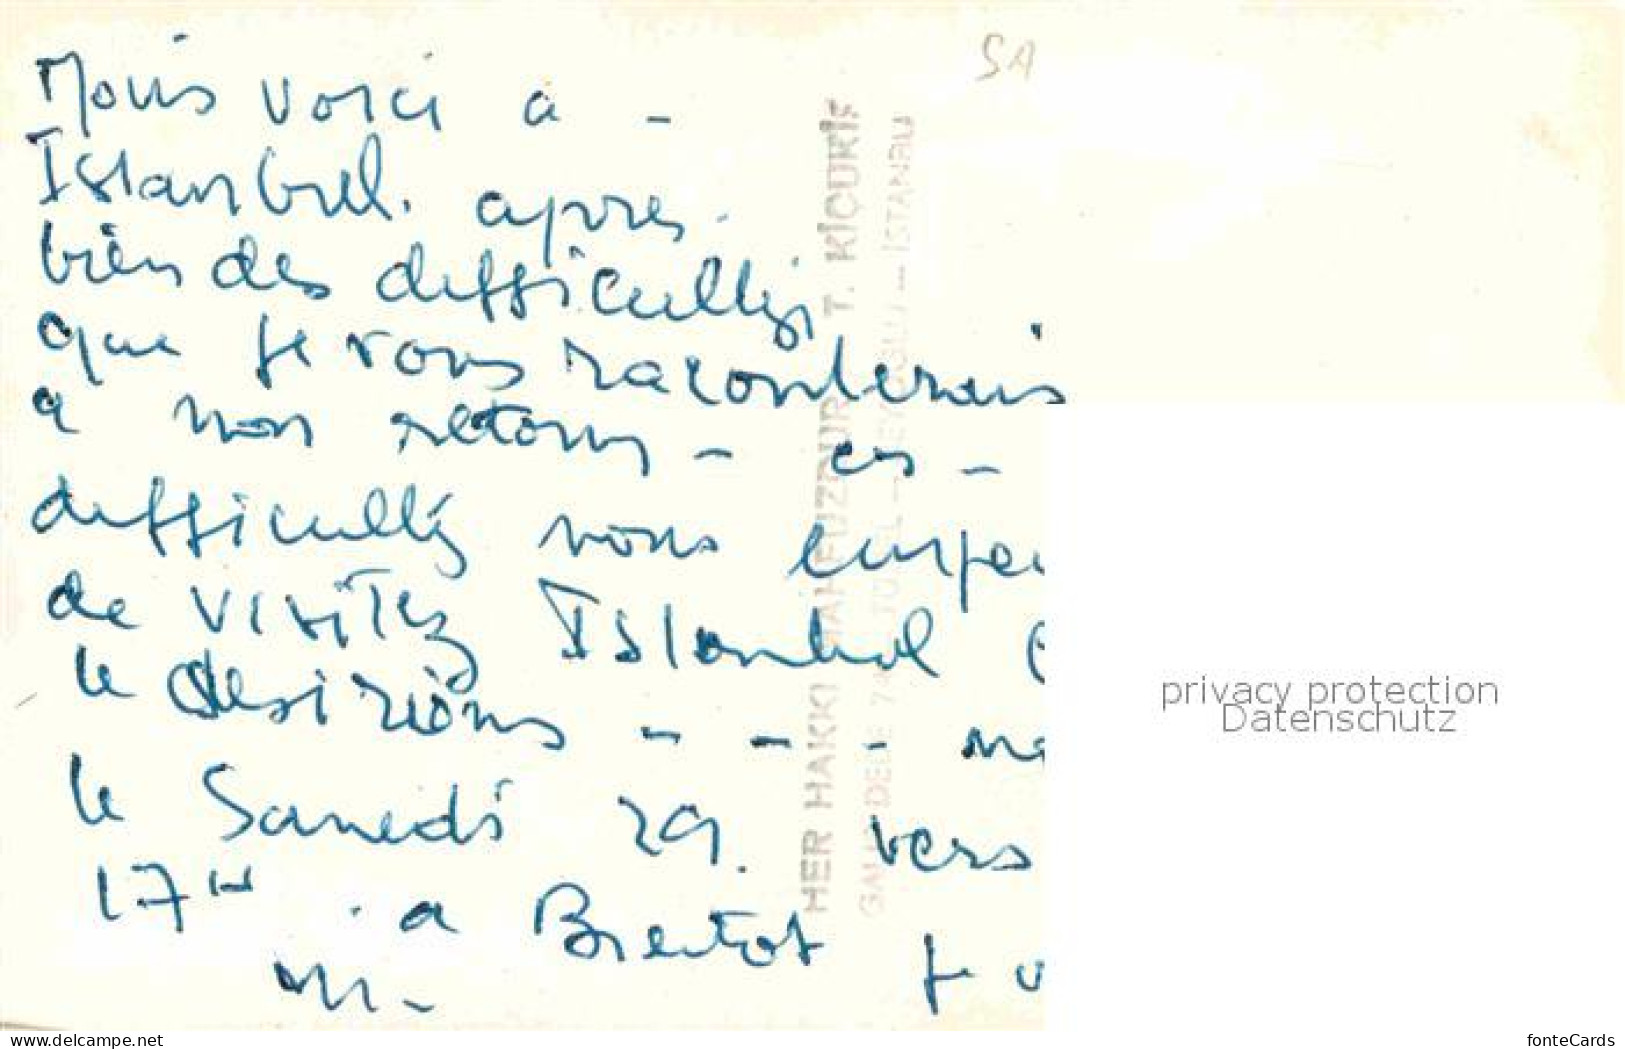 SA
Nous voici à -
Istanbul. après.
bien des difficultés
que je vous raconterais
à mon retour - ces -
difficultés nous
de visiter Istanbul
le désirions - - -
le Samedi 29. vers
17H . a Bientot
HER HAKKI MAHFUZDUR T. KIÇURIS
GALIP DEDE
privacy protection
Datenschutz
www.delcampe.net
fonteCards